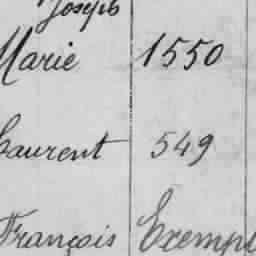 Joseph
Marie 1550
Laurent 549
François Exempt